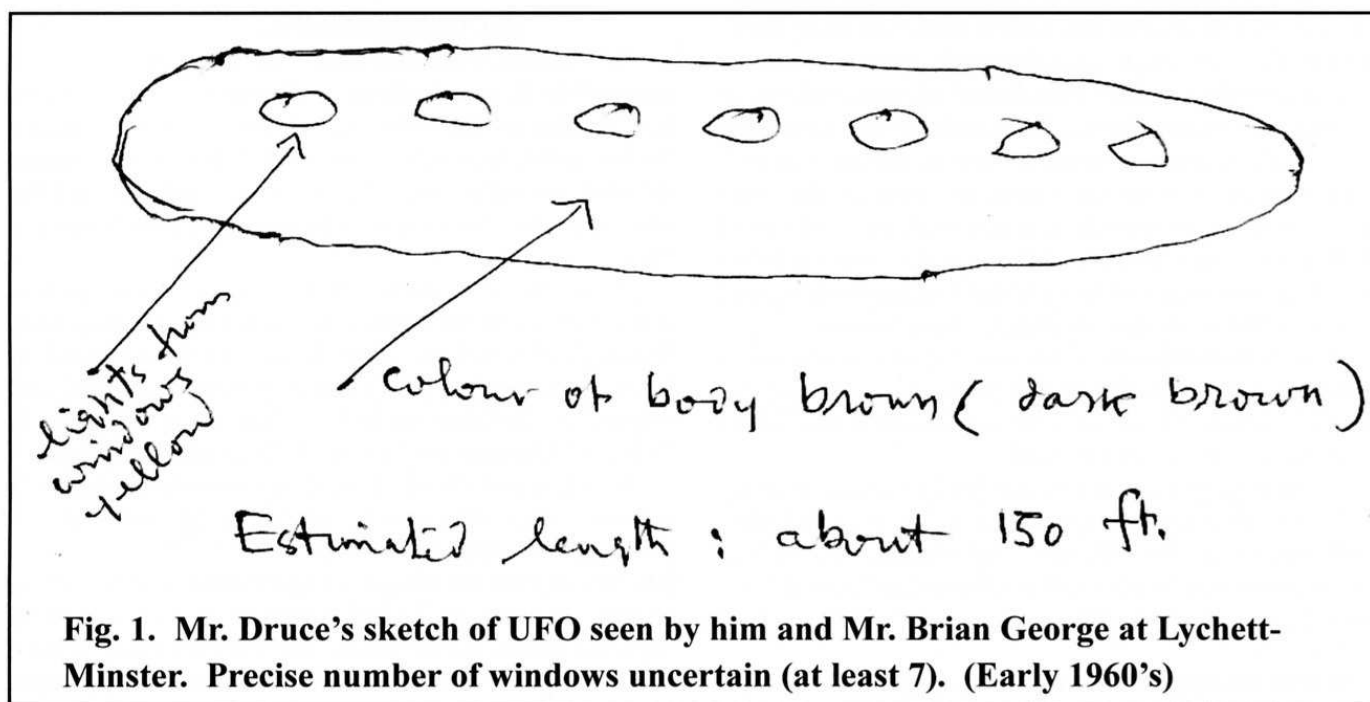 lights from
windows
yellow
colour of body brown ( dark brown )
Estimated length : about 150 ft.
Fig. 1. Mr. Druce's sketch of UFO seen by him and Mr. Brian George at Lychett-
Minster. Precise number of windows uncertain (at least 7). (Early 1960's)